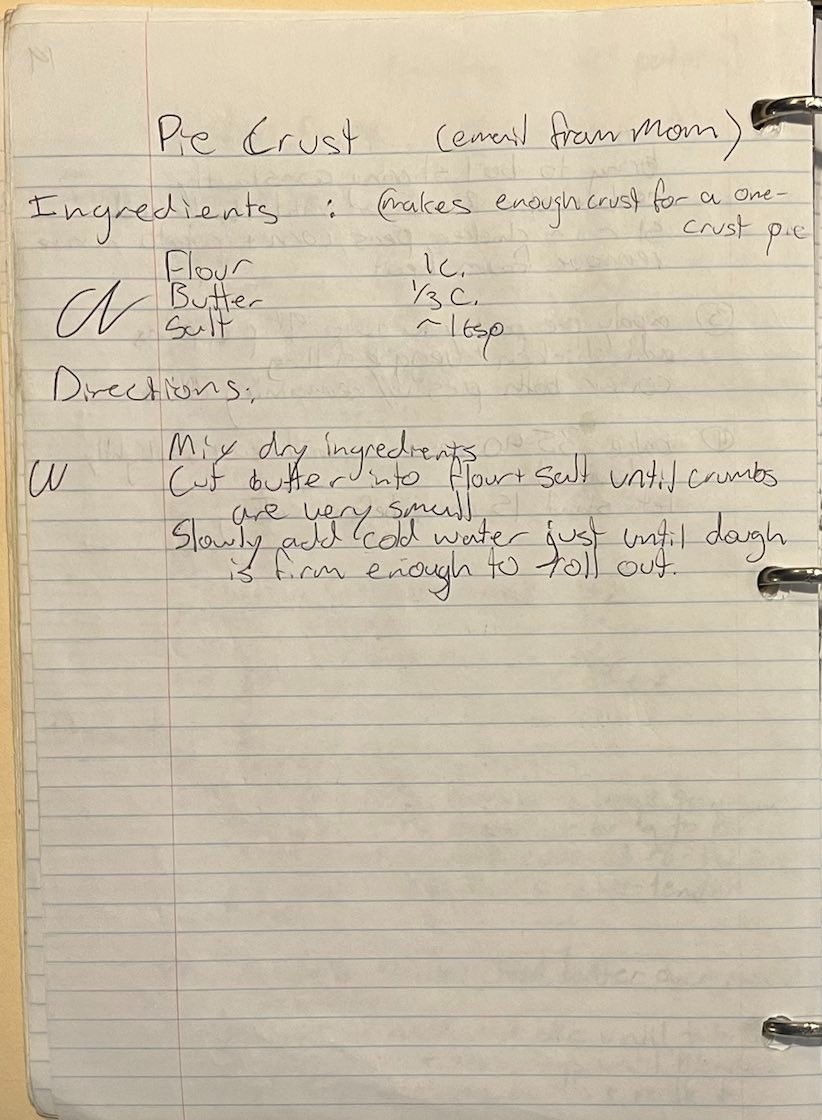 Pie Crust (email from Mom)
Ingredients : (makes enough crust for a one-
crust pie
Flour 1c.
Butter 1/3 c.
Salt ~1tsp
Directions:
Mix dry ingredients
Cut butter into flour + salt until crumbs
are very small
Slowly add cold water just until dough
is firm enough to roll out.